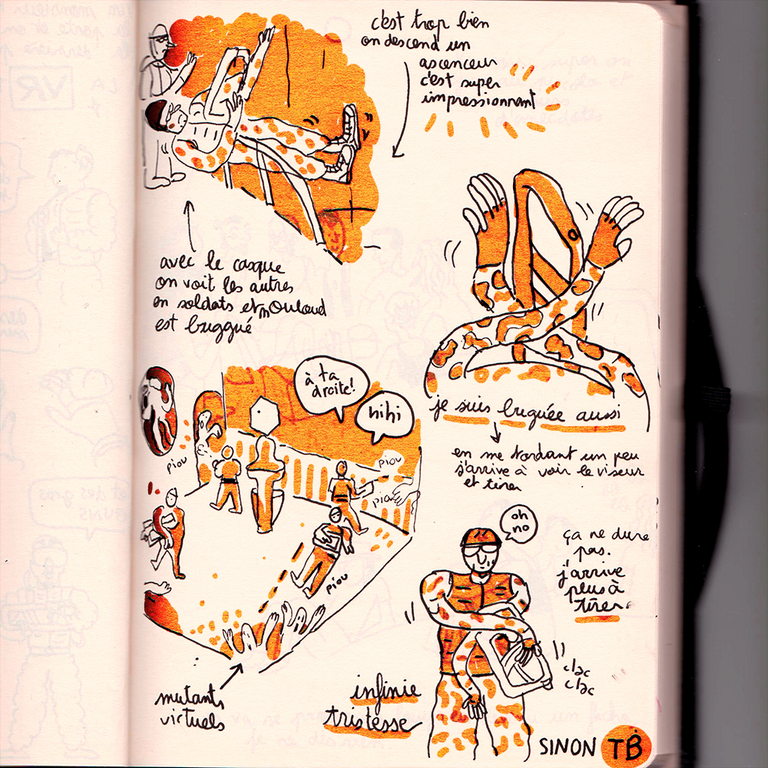 c'est trop bien
on descend un
ascenceur
c'est super
impressionnant
avec le casque
on voit les autres
en soldats et mouloud
est buggué
je suis buguée aussi
en me tordant un peu
j'arrive à voir le viseur
et tirer
à ta
droite!
hihi
piou
piou
piou
piou
mutants
virtuels
oh
no
ça ne dure
pas.
j'arrive
plus à
tirer.
clac
clac
infinie
tristesse
SINON TB
VR